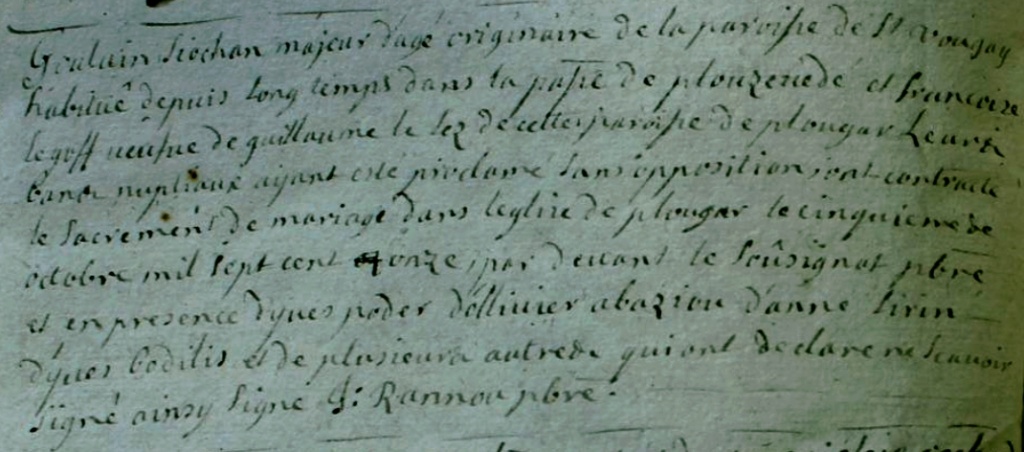 Gouluin Siochan majeur d'age originaire de la paroisse de St Vougay
habitué depuis long temps dans la passe de plouzeuedé et francoise
le goff ueufue de guillaume le lez de cette paroisse de plougar Leurs
bans nuptiaux ayant esté proclamé sans opposition, ont contracté
le sacrement de mariage dans l'eglise de plougar le cinquieme de
octobre mil sept cent onze, par deuant le soûsignat pbre
et en presence d'yues poder d'ollivier abaziou d'anne Sirin
d'yues bodilis et de plusieurs autres qui ont declare ne scauoir
signé ainsy signe J: Rannou pbre.